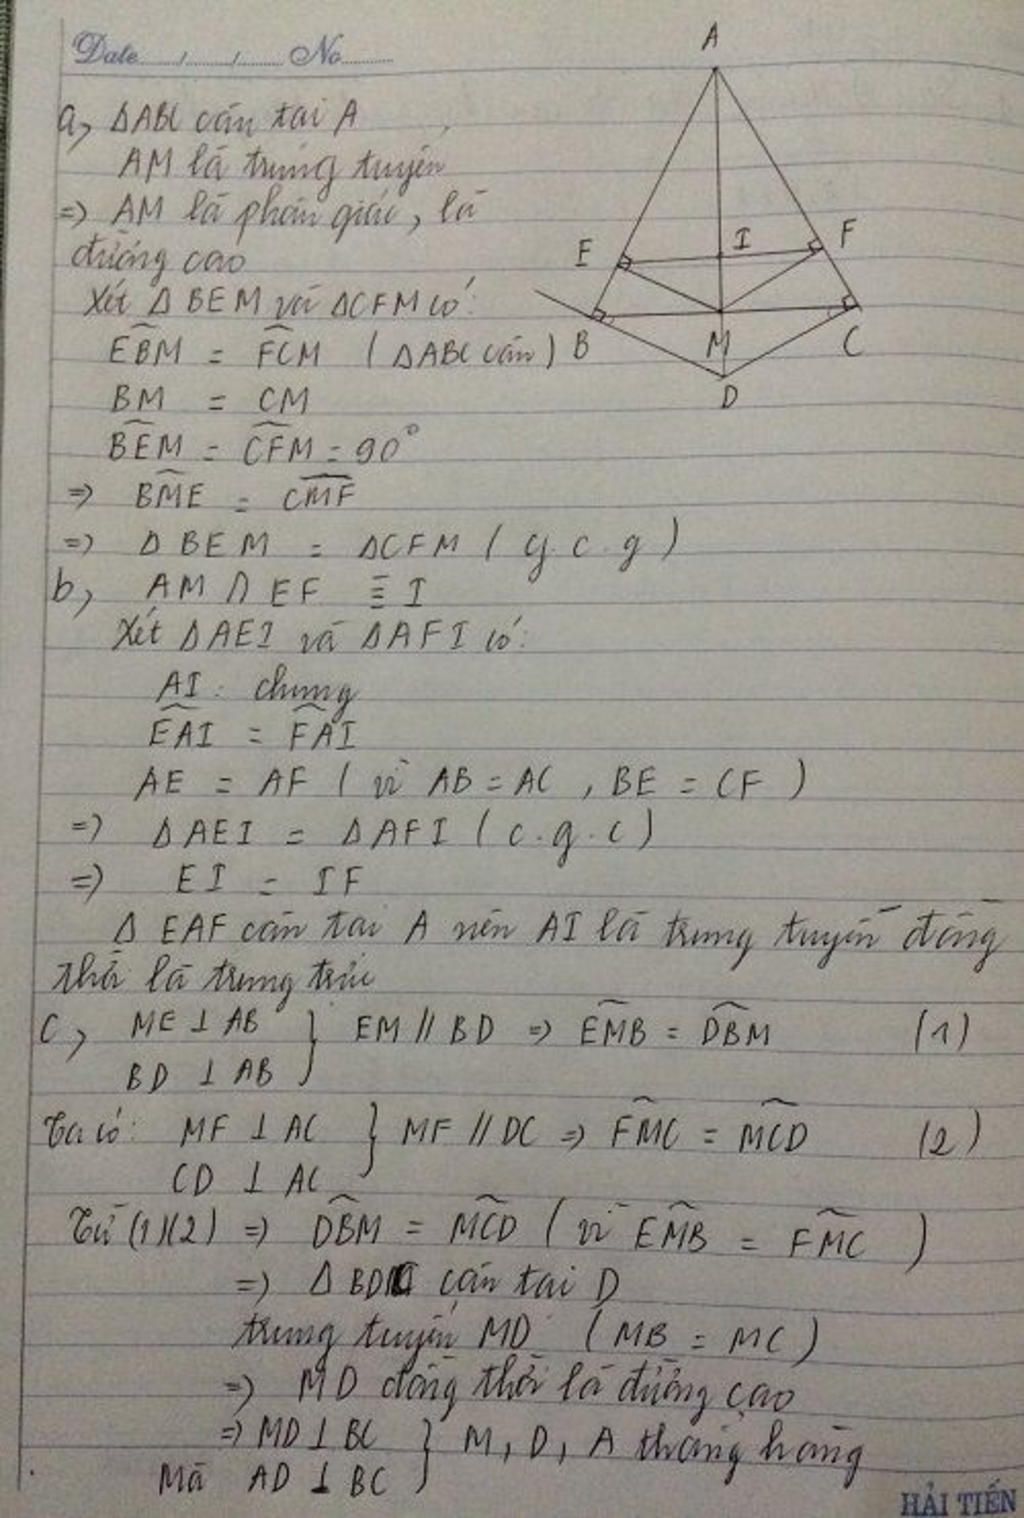 Date / / No
A
a, ΔABC cân tại A
AM là trung tuyến
=> AM là phân giác, là
đường cao
E I F
Xét ΔBEM và ΔCFM có:
B M C
D
EBM = FCM (ΔABC cân)
BM = CM
BEM = CFM = 90°
=> BME = CMF
=> ΔBEM = ΔCFM (g.c.g)
b, AM ∩ EF ≡ I
Xét ΔAEI và ΔAFI có:
AI: chung
EAI = FAI
AE = AF (vì AB = AC, BE = CF)
=> ΔAEI = ΔAFI (c.g.c)
=> EI = IF
ΔEAF cân tại A nên AI là trung tuyến đồng
thời là trung trực
c, ME ⊥ AB } EM // BD => EMB = DBM (1)
BD ⊥ AB
Ta có: MF ⊥ AC } MF // DC => FMC = MCD (2)
CD ⊥ AC
Từ (1)(2) => DBM = MCD (vì EMB = FMC)
=> ΔBDC cân tại D
trung tuyến MD (MB = MC)
=> MD đồng thời là đường cao
=> MD ⊥ BC } M, D, A thẳng hàng
Mà AD ⊥ BC
HẢI TIẾN